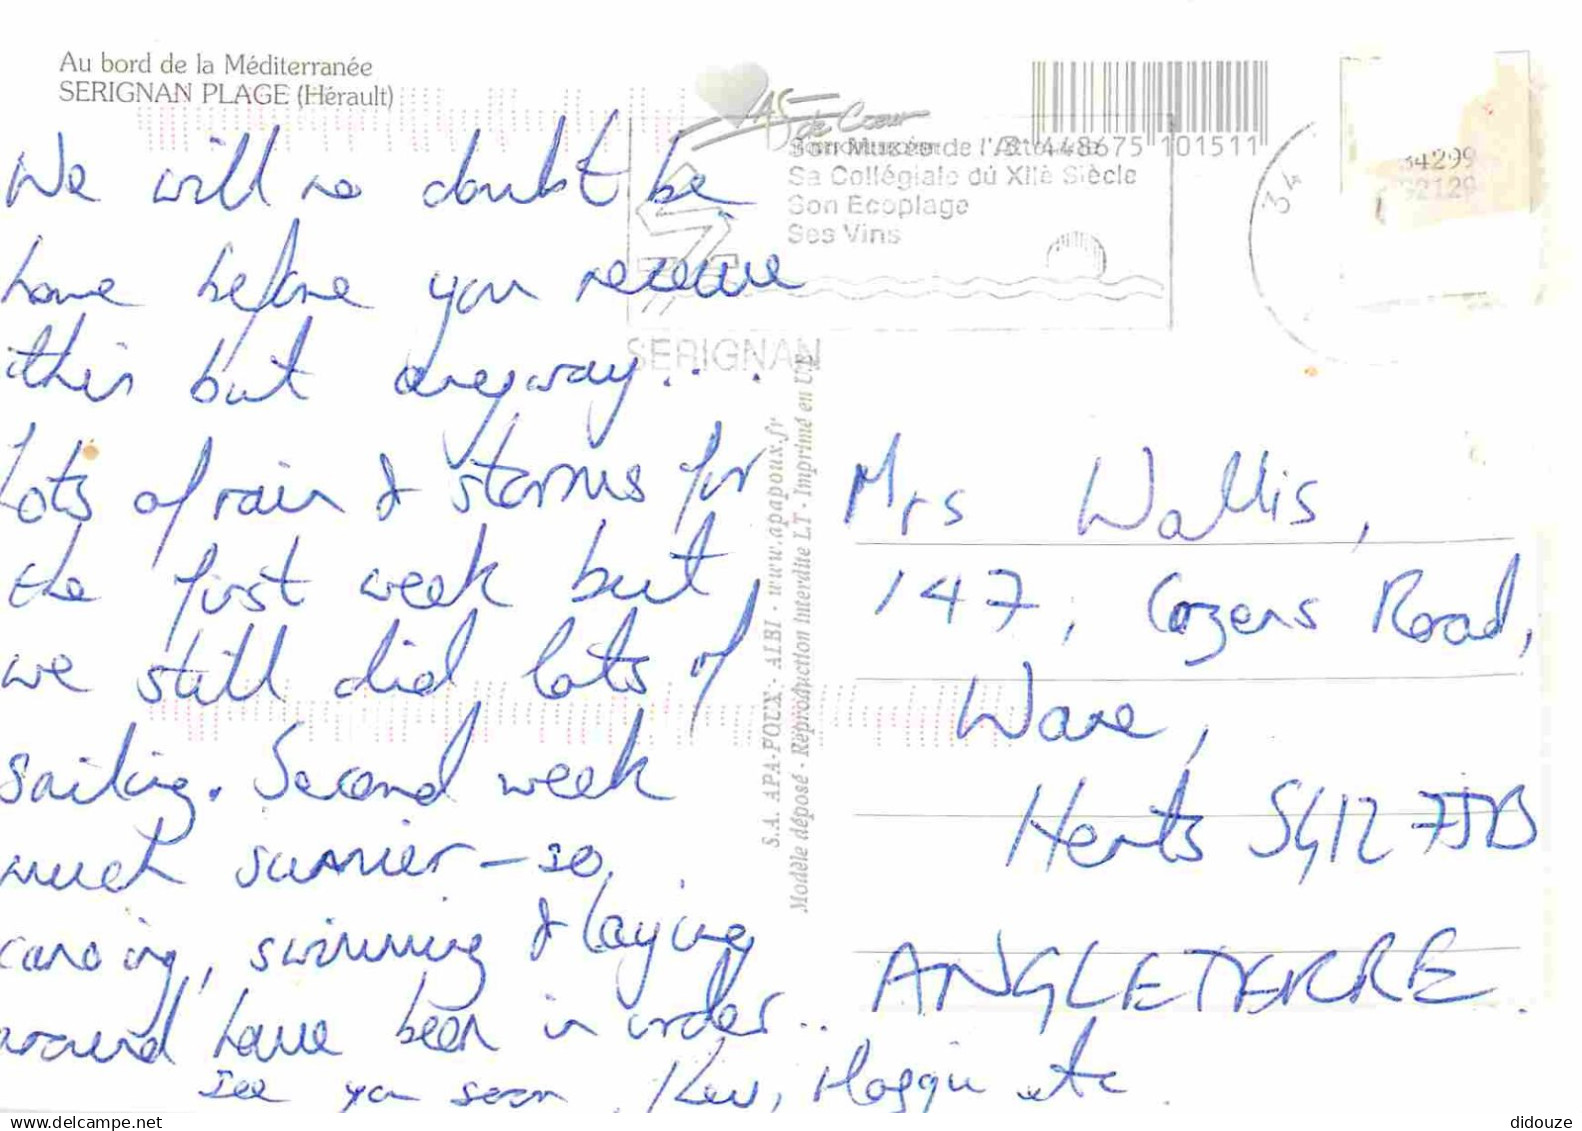 Au bord de la Méditerranée
SERIGNAN PLAGE (Hérault)
We will no doubt be
home before you receive
this but anyway....
Lots of rain & storms for
the first week but
we still did lots of
sailing. Second week
much sunnier - so
canoing, swimming & laying
around have been in order..
See you soon, Kev, Maggie etc
AS de Cœur
3 448675 101511
Son Musée de l'
Sa Collégiale du XIIè Siècle
Son Ecoplage
Ses Vins
SERIGNAN
34
34299
S.A. APA-POUX - ALBI - www.apapoux.fr
Modèle déposé - Réproduction interdite LT - Imprimé en U.E
Mrs Wallis,
147, Cozens Road,
Ware,
Herts SG12 7JB
ANGLETERRE.
didouze